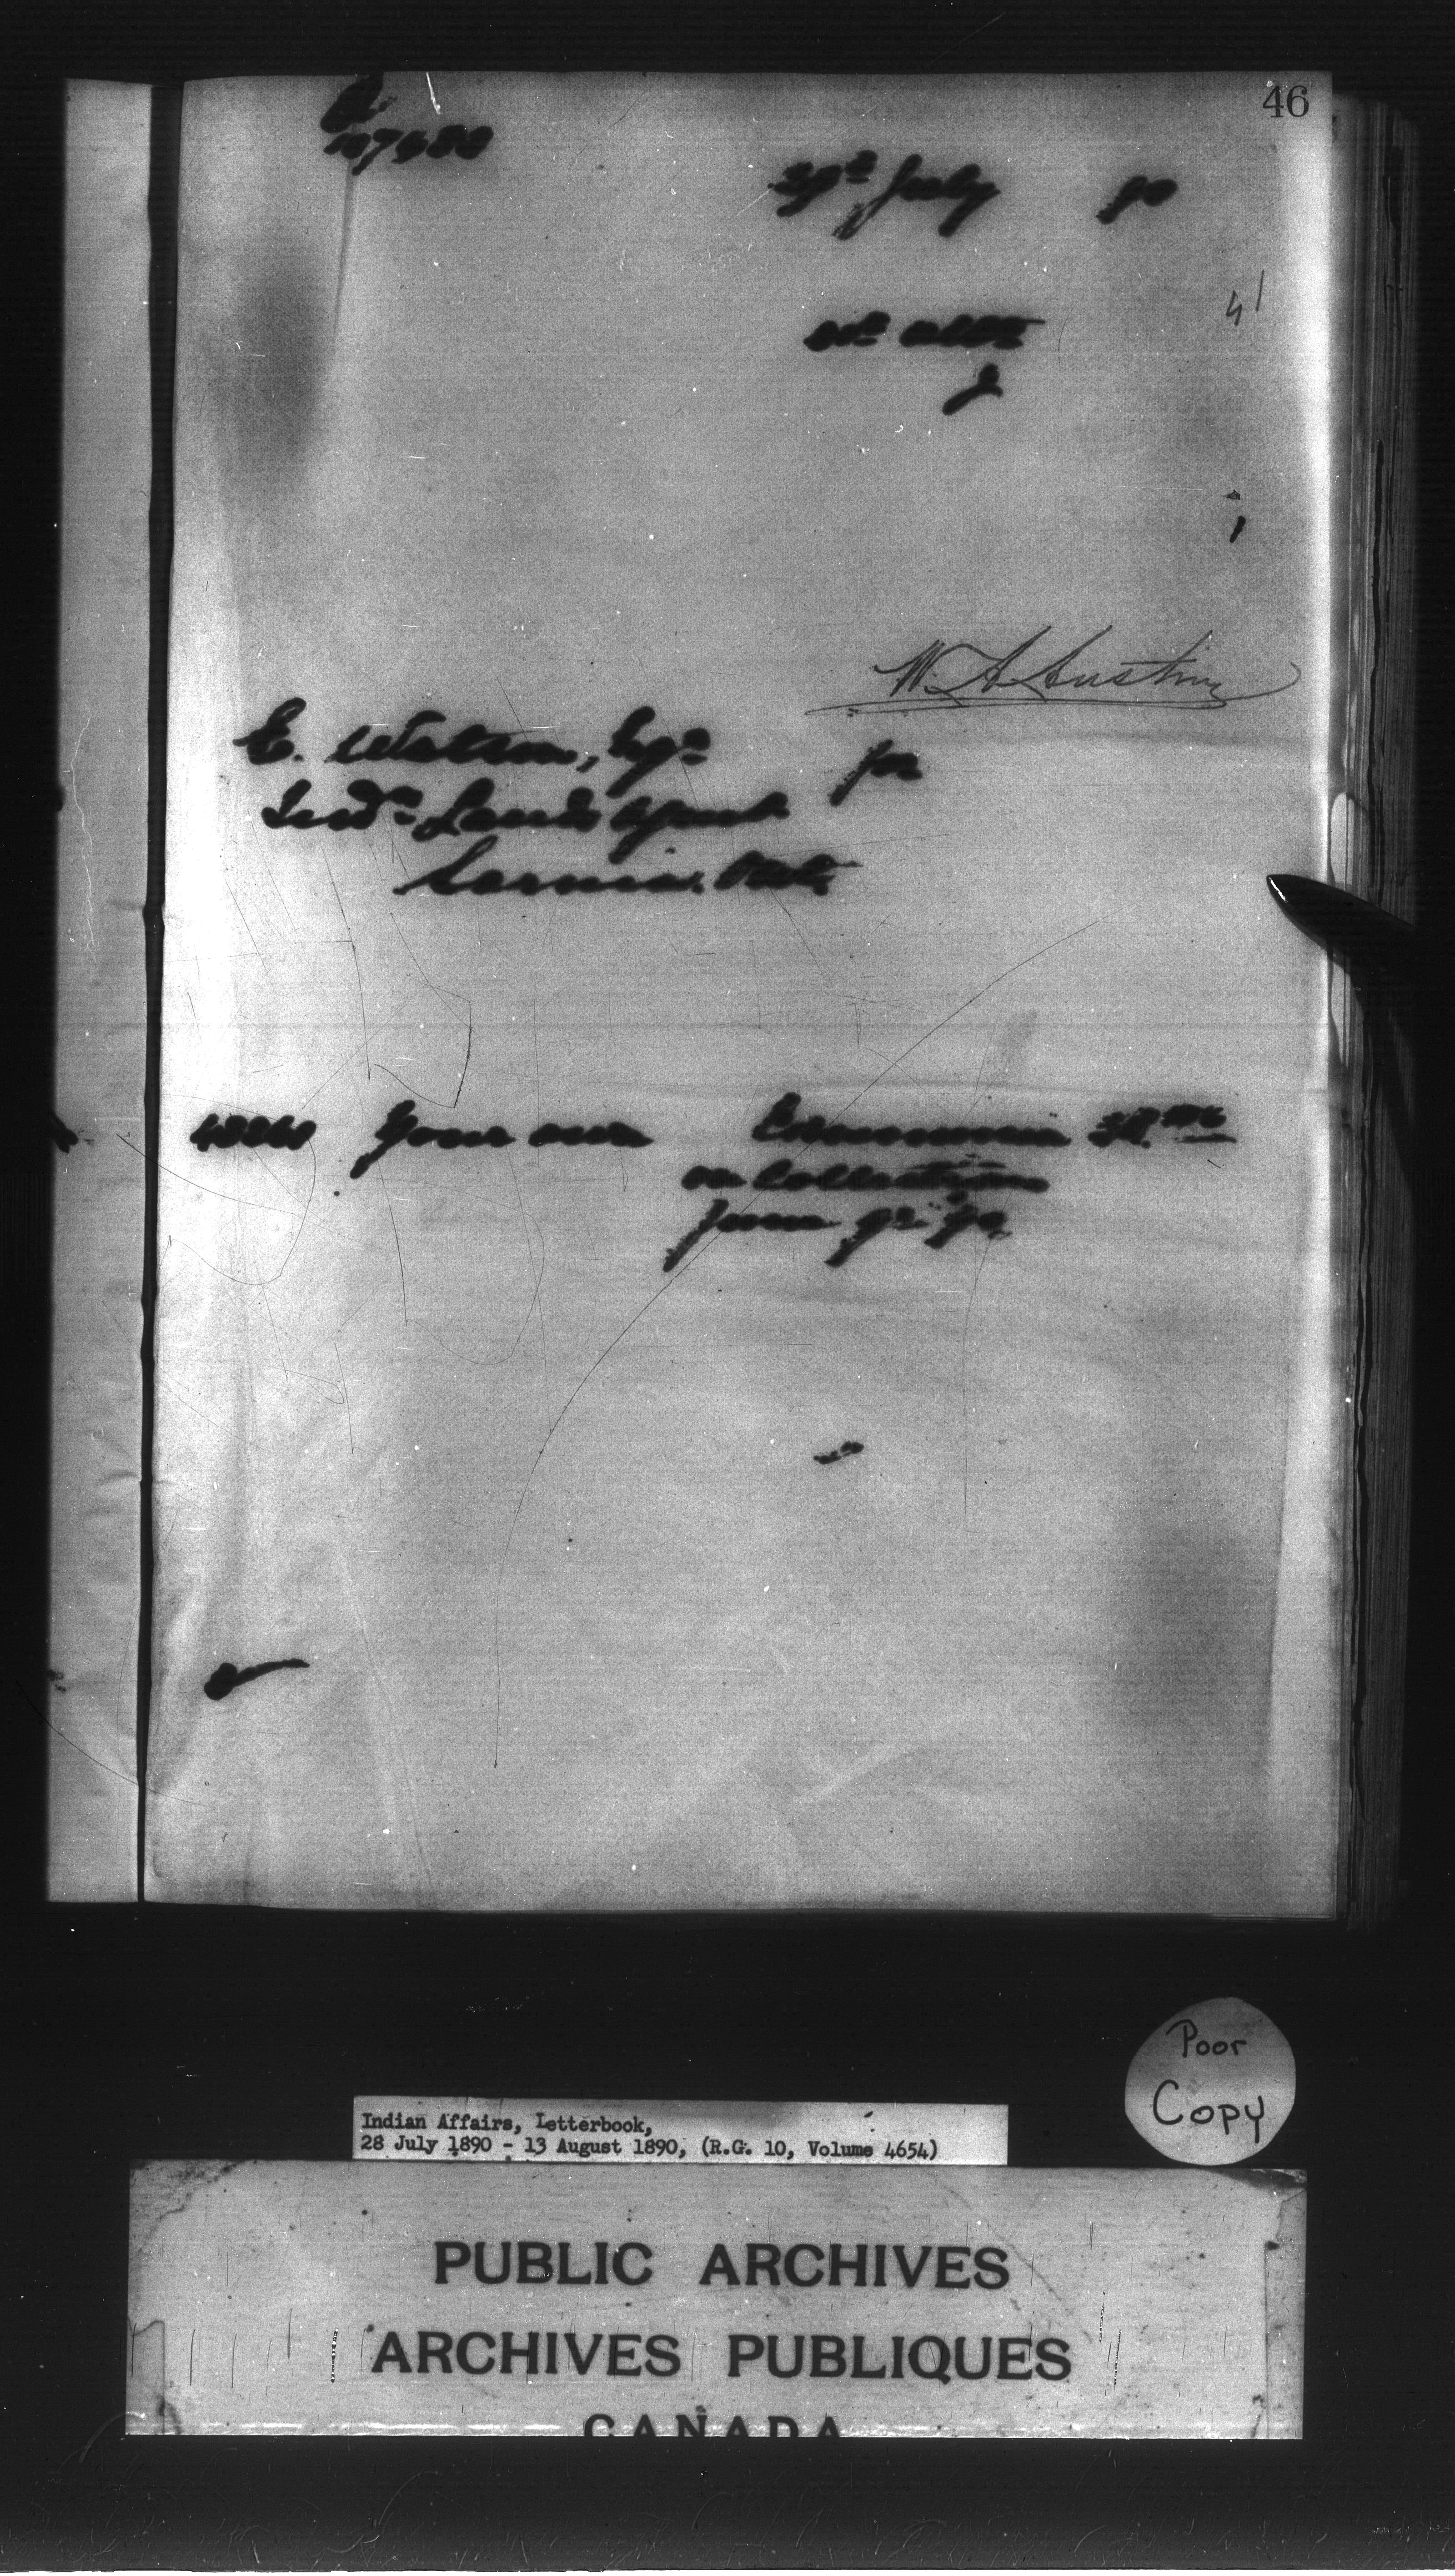 46
29th July 90
W. A. Austin
E. Watson, Esqre
for
Indn. Lands Agent
Sarnia. Ont.
Your own Commission
on Collections
June qr. 90
Poor
Copy
Indian Affairs, Letterbook,
28 July 1890 - 13 August 1890, (R.G. 10, Volume 4654)
PUBLIC ARCHIVES
ARCHIVES PUBLIQUES
CANADA